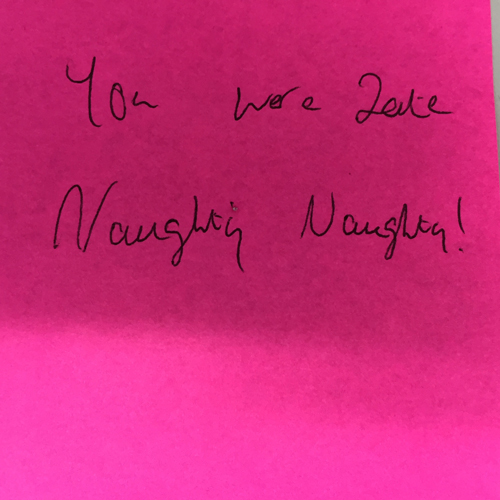 You were Late
Naughty Naughty!